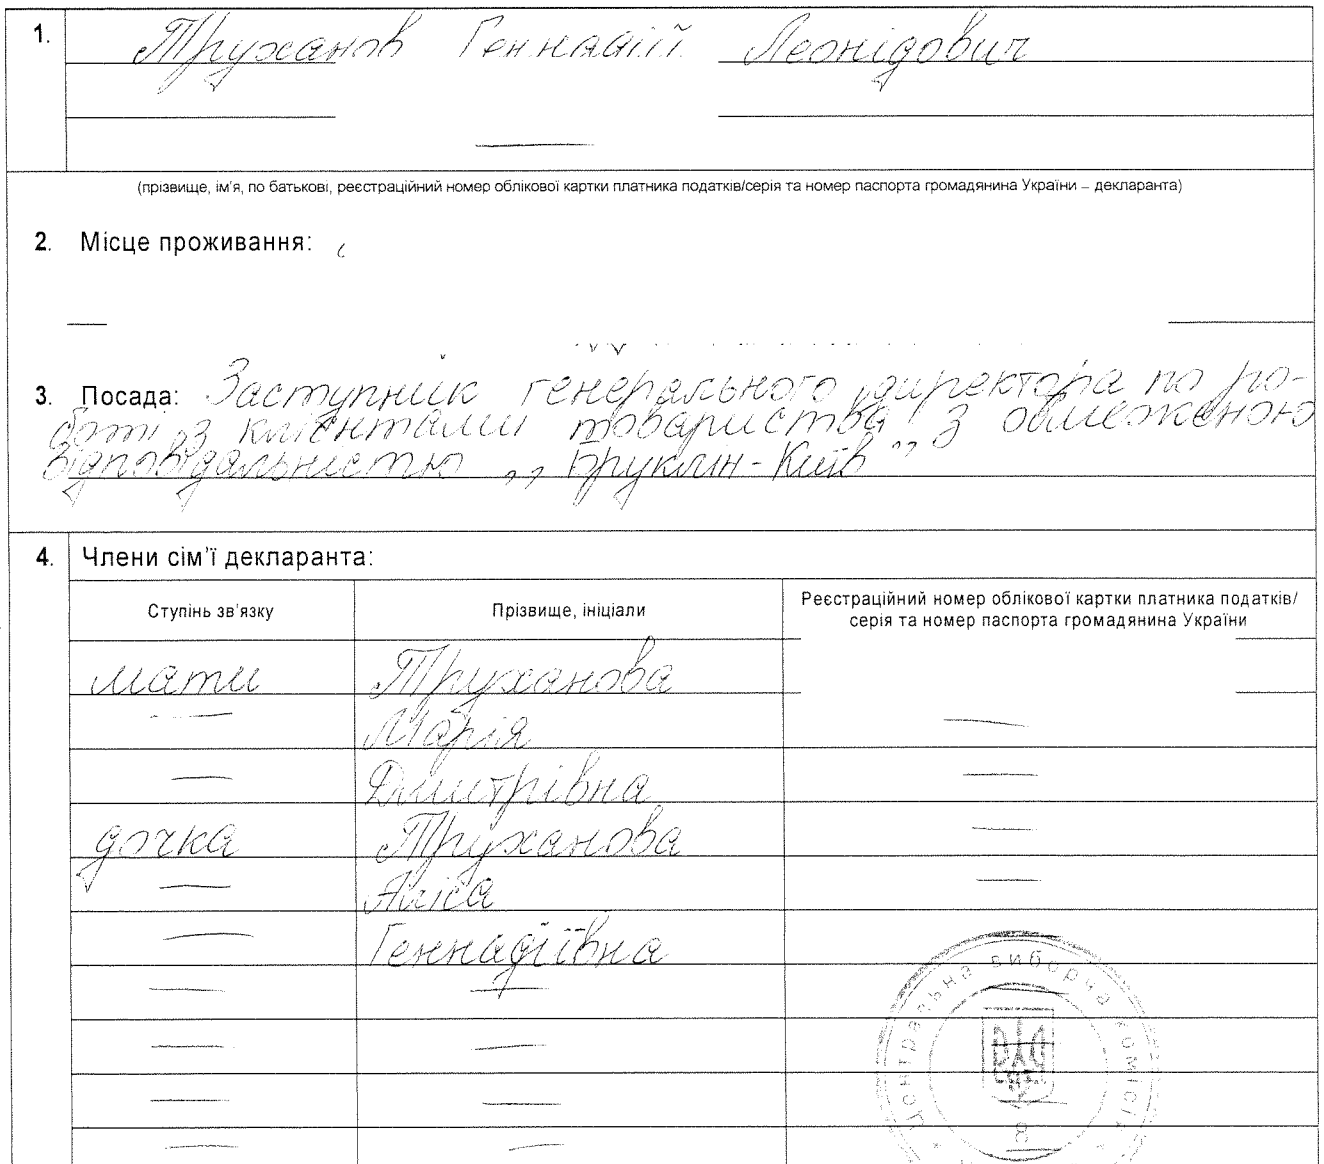 1. Труханов Геннадій Леонідович
(прізвище, ім'я, по батькові, реєстраційний номер облікової картки платника податків/серія та номер паспорта громадянина України – декларанта)
2. Місце проживання:
3. Посада: Заступник генерального директора по ро-
боті з клієнтами товариства з обмеженою
відповідальністю „Бруклін-Київ”
4. Члени сім'ї декларанта:
Ступінь зв'язку Прізвище, ініціали Реєстраційний номер облікової картки платника податків/
серія та номер паспорта громадянина України
мати Труханова
Марія
Дмитрівна
дочка Труханова
Аліса
Геннадіївна
Центральна виборча комісія
8